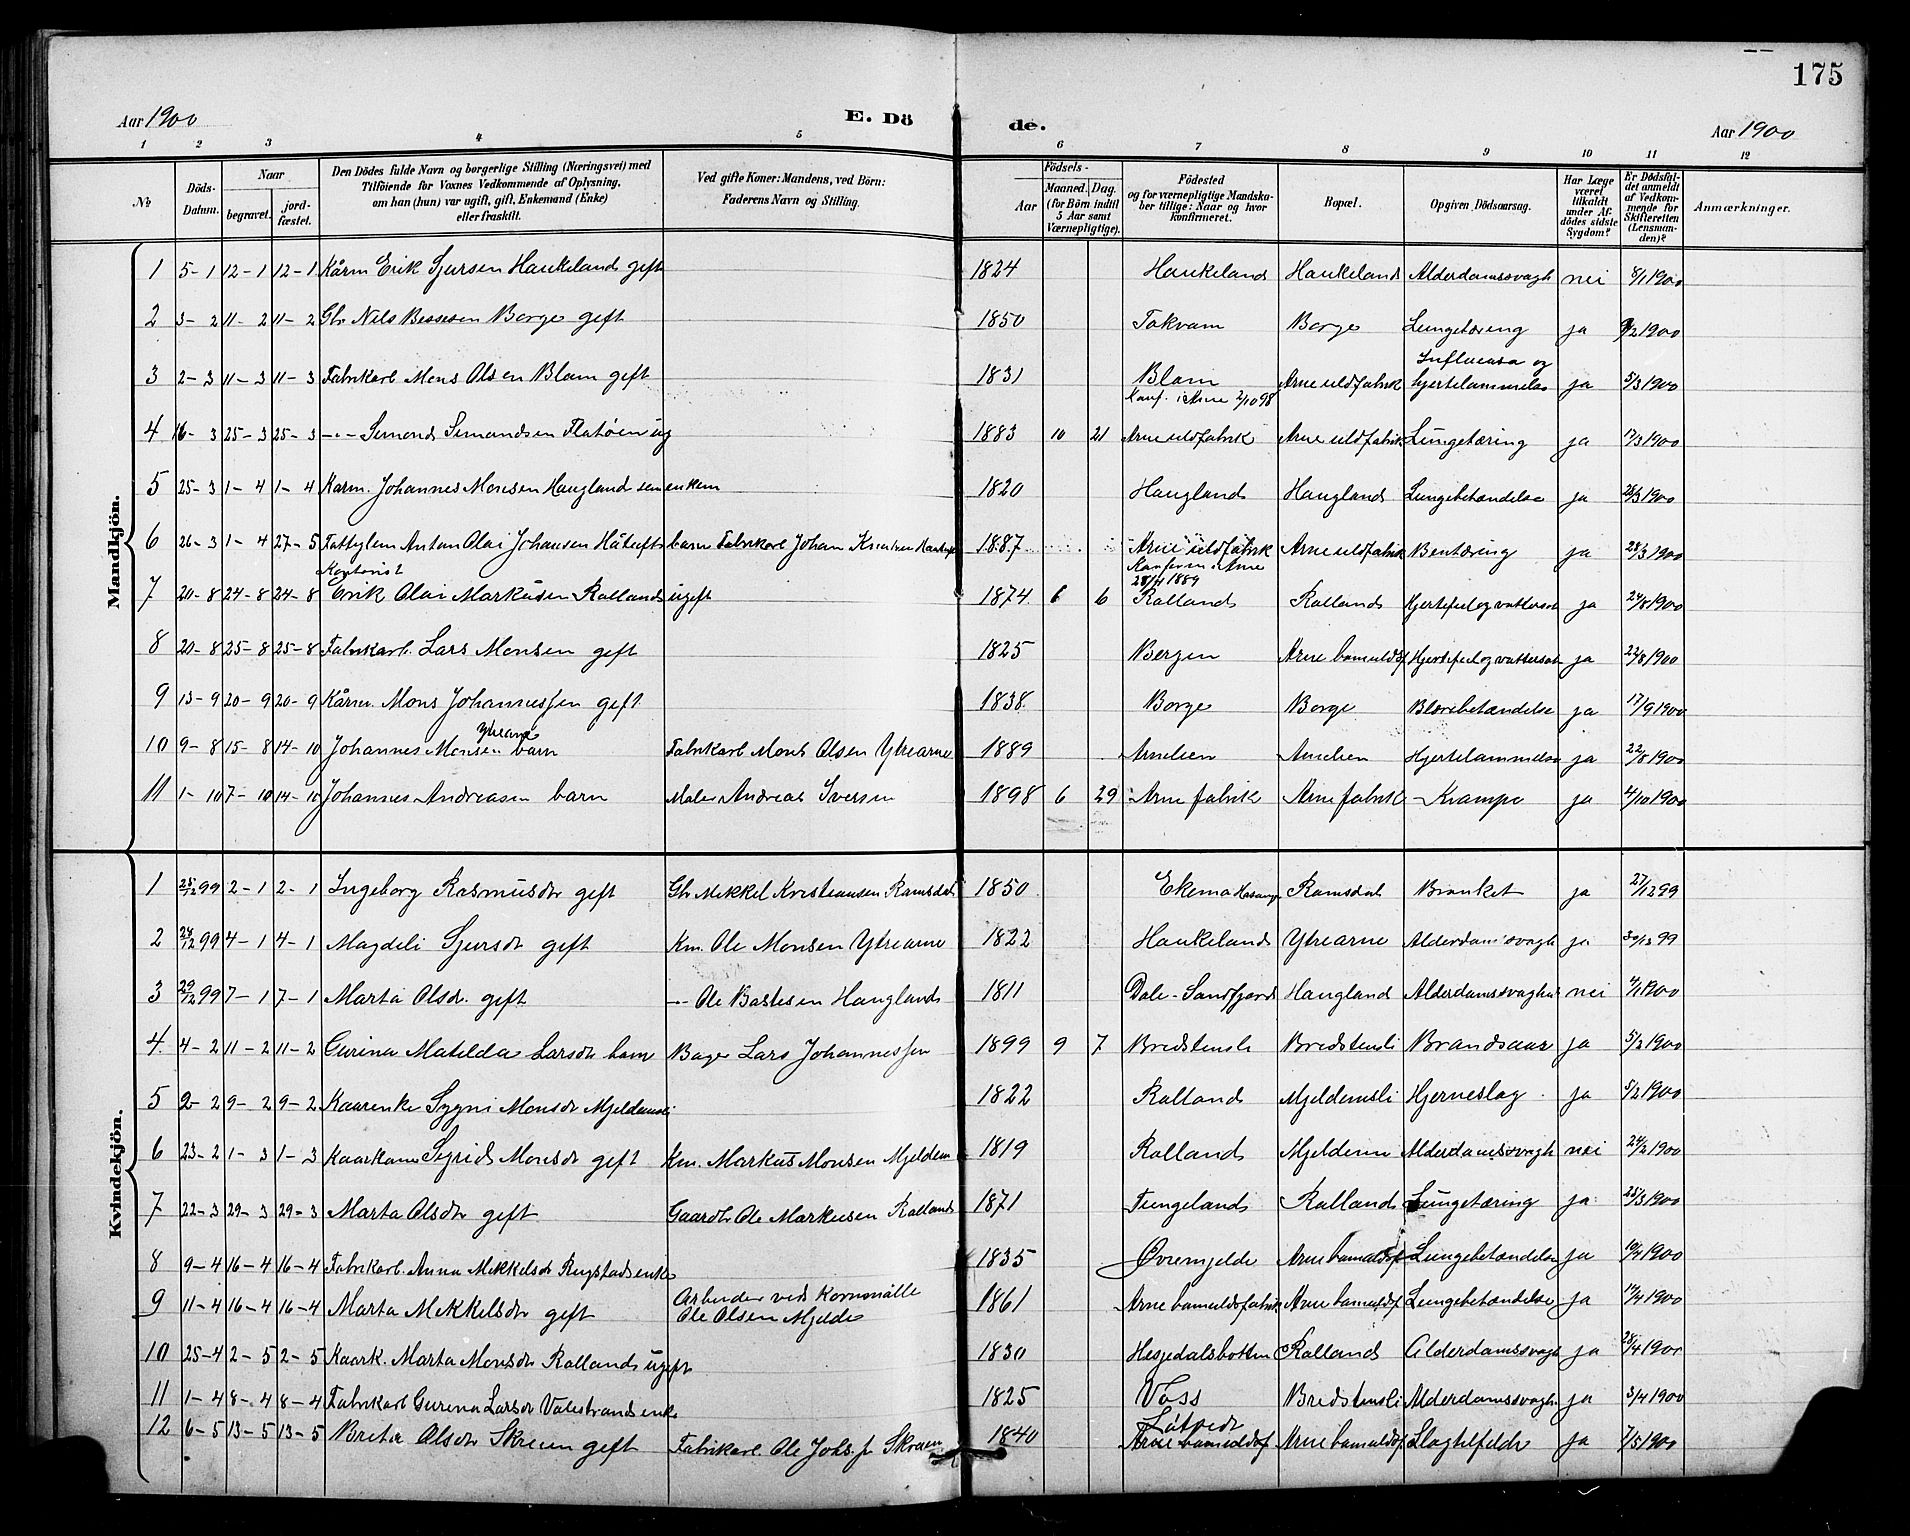 175
Aar 1900 E. Dö de. Aar 1900
1 2 3 4 5 6 7 8 9 10 11 12
No
Döds-Datum.
Naar begravet. jordfæstet.
Den Dödes fulde Navn og borgerlige Stilling (Næringsvei) med Tilföiende for Voxnes Vedkommende af Oplysning, om han (hun) var ugift, gift, Enkemand (Enke) eller fraskilt.
Ved gifte Koner: Mandens, ved Börn: Faderens Navn og Stilling.
Födsels- Aar Maaned. Dag. (for Börn indtil 5 Aar samt Værnepligtige).
Födested og for værnepligtige Mandskaber tillige: Naar og hvor konfirmeret.
Bopæl.
Opgiven Dödsaarsag.
Har Læge været tilkaldt under Afdödes sidste Sygdom?
Er Dödsfaldet anmeldt af Vedkommende for Skifteretten (Lensmanden)?
Anmærkninger.
Mandkjön.
1 5-1 12-1 12-1 Kårm Erik Sjursen Haukeland gift 1824 Haukeland Haukeland Alderdomssvagh nei 8/1 1900
2 3-2 11-2 11-2 Gbr Nils Bessesen Borge gift 1850 Takvam Borge Lungetæring ja 9/2 1900
3 2-3 11-3 11-3 Fabrikarb Mons Olsen Blom gift 1831 Blom Arne uldfabrik Influensa og hjertelammelse ja 5/3 1900
4 16-3 25-3 25-3 -"- Simond Simondsen Flatøen ug 1883 10 21 Konf. i Arne 2/10 98 Arne uldfabrik Arne uldfabrik Lungetæring ja 17/3 1900
5 25-3 1-4 1-4 Karm. Johannes Monsen Haugland sen enkem 1820 Haugland Haugland Lungebetændelse ja 28/3 1900
6 26-3 1-4 27-5 Fattiglem Anton Olai Johansen barn Fabrikarb Johan Knutsen 1887 Arne uldfabrik Arne uldfabrik Bentæring ja 28/3 1900
7 20-8 24-8 24-8 Kontorist Erik Olai Markusen Rolland ugift 1874 6 6 Konfirm i Arne 1889 Rolland Rolland Hjertefeil og vattersot ja 24/8 1900
8 20-8 25-8 25-8 Fabrikarb. Lars Monsen gift 1825 Bergen Arne bomuldsf Hjertefeil og vattersot ja 22/8 1900
9 13-9 20-9 20-9 Kårm. Mons Johannessen gift 1838 Borge Borge Blærebetændelse ja 17/9 1900
10 9-8 15-8 14-10 Johannes Monsen Ytrearne barn Fabrikarb Mons Olsen Ytrearne 1889 Arnelien Arnelien Hjertelammelse ja 22/8 1900
11 1-10 7-10 14-10 Johannes Andreasen barn Maler Andreas Iversen 1898 6 29 Arne fabrik Arne fabrik Krampe ja 4/10 1900
Kvindekjön.
1 25/12 99 2-1 2-1 Ingeborg Rasmusdtr gift Gbr Mikkel Kristiansen Ramsdal 1850 Ekema Ramsdal Bronket ja 27/12 99
2 24/12 99 4-1 4-1 Magdeli Sjursdr gift Km. Ole Monsen Ytrearne 1822 Haukeland Ytrearne Alderdomssvagh ja 30/12 99
3 29/12 99 7-1 7-1 Marta Olsdr. gift -"- Ole Bastesen Haugland 1811 Dale - Søndfjord Haugland Alderdomssvaghed nei 4/1 1900
4. 4-2 11-2 11-2 Gurina Matilda Larsdtr barn Bager Lars Johannessen 1899 9 7 Bredstensli Bredstensli Brandsaar ja 5/2 1900
5 2-2 9-2 9-2 Kaarenke Sygni Monsdr Mjeldemsli 1822 Rolland Mjeldemsli Hjerneslag ja 5/2 1900
6 23-2 1-3 1-3 Kaarkone Sigrid Monsdr gift Km. Markus Monsen Mjeldem 1819 Rolland Mjeldem Alderdomssvagh nei 24/2 1900
7 22-3 29-3 29-3 Marta Olsdtr gift Gaardbr Ole Markusen Rolland 1871 Tungeland Rolland Lungetæring ja 25/3 1900
8 9-4 16-4 16-4 Fabrikarb. Anna Mikkelsdr Rugstad enke 1835 Øvremjelde Arne bomuldsf Lungebetændelse ja 10/4 1900
9 11-4 16-4 16-4 Marta Mikkelsdtr gift Arbeider ved Kornmølle Ole Olsen Mjelde 1861 Arne bomuldsfabrik Arne bomuldsf Lungebetændelse ja 14/4 1900
10 25-4 2-5 2-5 Kaark. Marta Monsdr Rolland ugift 1830 Hesjedalsbotten Rolland Alderdomssvagh ja 28/4 1900
11 1-4 8-4 8-4 Fabrikarb Gurina Larsdr Valestrand enke 1825 Voss Bredstensli Alderdomssvagh. ja 3/4 1900
12 6-5 13-5 13-5 Brita Olsdtr Skreien gift Fabrikarb. Ole Johs.s Skreien 1840 Løtvedt Arne bomuldsf Arne bomuldsf Slagtilfelde ja 7/5 1900